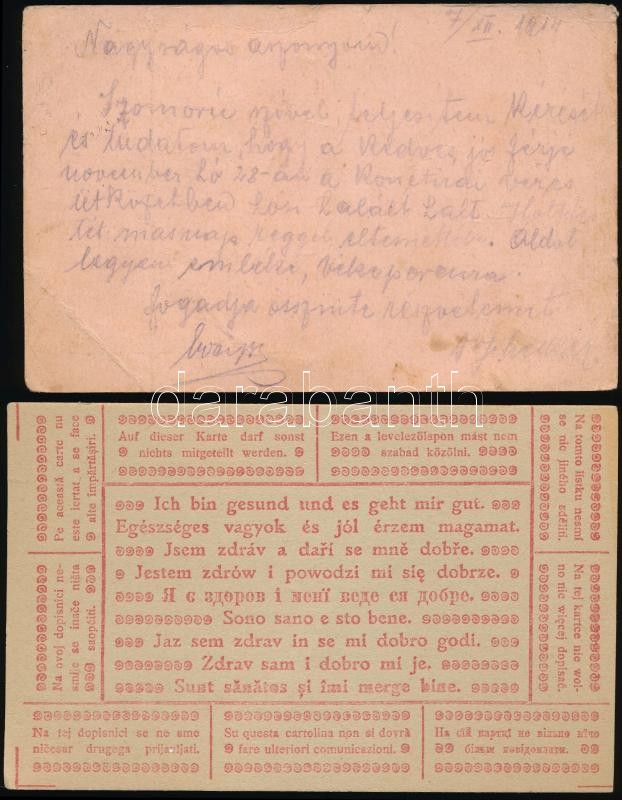 7/XII. 1914
Nagyságos asszonyom!
Szomorú szívvel teljesítem kérését
és tudatom, hogy a kedves jó férje
november hó 28-án a
ütközetben hősi halált halt.
tét másnap reggel eltemettük. Áldott
legyen emléke, béke poraira.
Fogadja őszinte részvétemet
darabanth
Auf dieser Karte darf sonst
nichts mitgeteilt werden.
Ezen a levelezőlapon mást nem
szabad közölni.
Pe această carte nu
este iertat a se face
alte împărtăşiri.
Na tomto lístku nesmí
se nic jiného sděliti.
Ich bin gesund und es geht mir gut.
Egészséges vagyok és jól érzem magamat.
Jsem zdráv a daří se mně dobře.
Jestem zdrów i powodzi mi się dobrze.
Я є здоров і менї веде ся добре.
Sono sano e sto bene.
Jaz sem zdrav in se mi dobro godi.
Zdrav sam i dobro mi je.
Sunt sănătos şi îmi merge bine.
Na ovoj dopisnici ne-
smije se inače ništa
saopćiti.
Na tej kartce nie wol-
no nic więcej dopisać.
Na tej dopisnici se ne sme
ničesar drugega prijavljati.
Su questa cartolina non si dovrà
fare ulteriori comunicazioni.
На сїй картцї не вільно нїчо
більш повідомляти.